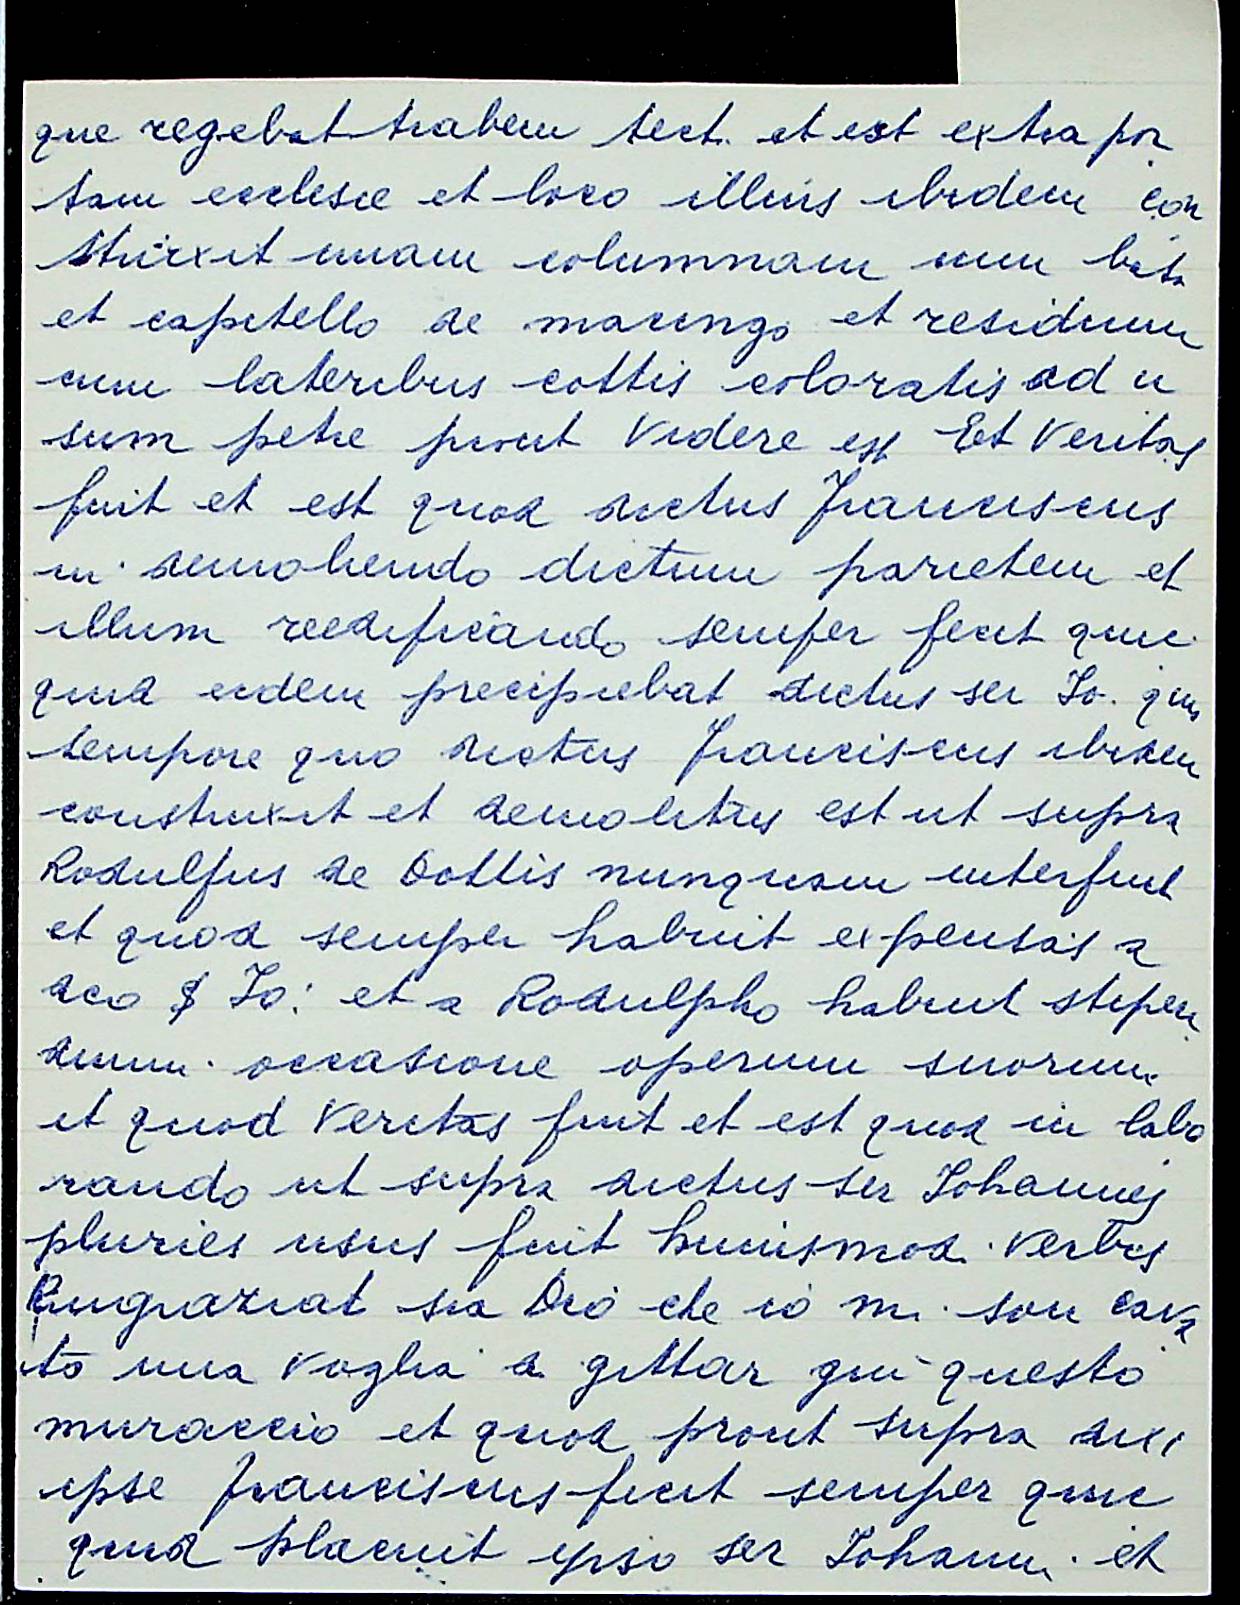 que regebat trabem tect. et est extra por
tam ecclesie et loco illius ibidem con
struxit unam columnam cum basa
et capitello de macengo et residuum
cum lateribus cottis coloratis ad u
sum petre prout videre est Et veritas
fuit et est quod dictus Franciscus
in demoliendo dictum parietem et
illum reedificando semper fecit quic
quid eidem precipiebat dictus ser Io. qui
tempore quo dictus Franciscus ibidem
construxit et demolitus est ut supra
Rodulfus de Dottis nunquam interfuit
et quod semper habuit expensas a
dco Io: et a Rodulpho habuit stipen
dium. occasione operum suorum.
et quod veritas fuit et est quod in labo
rando ut supra dictus ser Iohannes
pluries usus fuit huiusmod. verbis
Ringraziat sia Dio che io m. son cava
to una voglia d. gittar giu questo
muraccio et quod prout supra dixi
ipse Franciscus fecit semper quic
quid placuit ipso ser Iohann. et